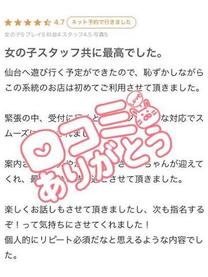 4.7
ネット予約で行きました
女の子5 プレイ5 料金4 スタッフ4.5 写真5
女の子スタッフ共に最高でした。
仙台へ遊び行く予定ができたので、恥ずかしながら
この系統のお店は初めてご利用させて頂きました。
緊張の中、受付に
な対応でス
ムーズに
れました。
案内さ
ちゃんが迎えて
くれ、最
させて頂きまし
た。
口コミ
ありがとう
楽しくお話しもさせて頂きましたし、次も指名する
ぞ！って気持ちにさせてくれました！
個人的にリピート必須だなと思えるような内容でし
た。